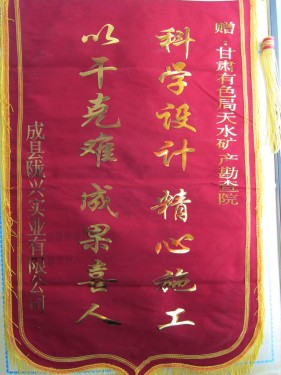 赠：甘肃有色局天水矿产勘查院
科学设计 精心施工
以干克难 成果喜人
成县陇兴实业有限公司